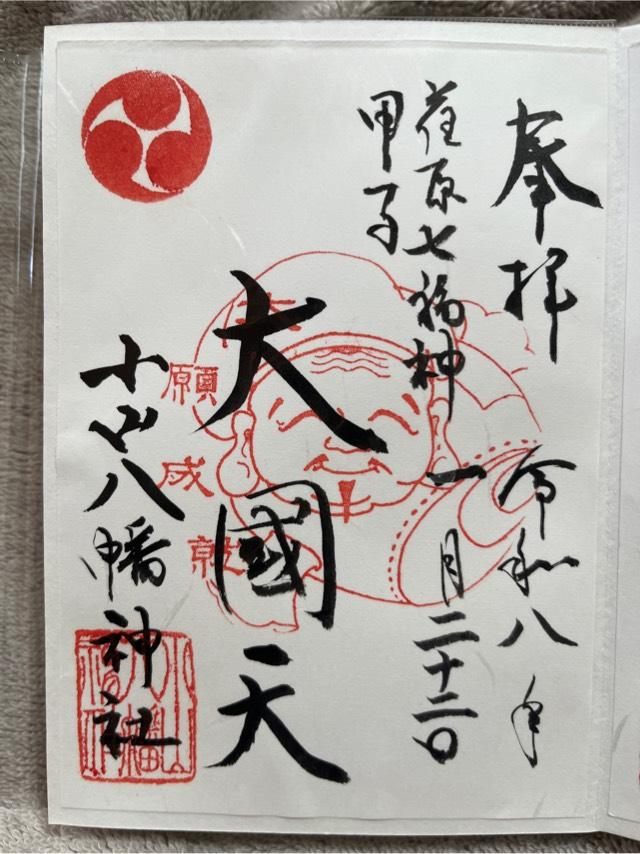 奉拝
令和八年
荏原七福神
一月二十二日
甲子
大國天
大願成就
小山八幡神社